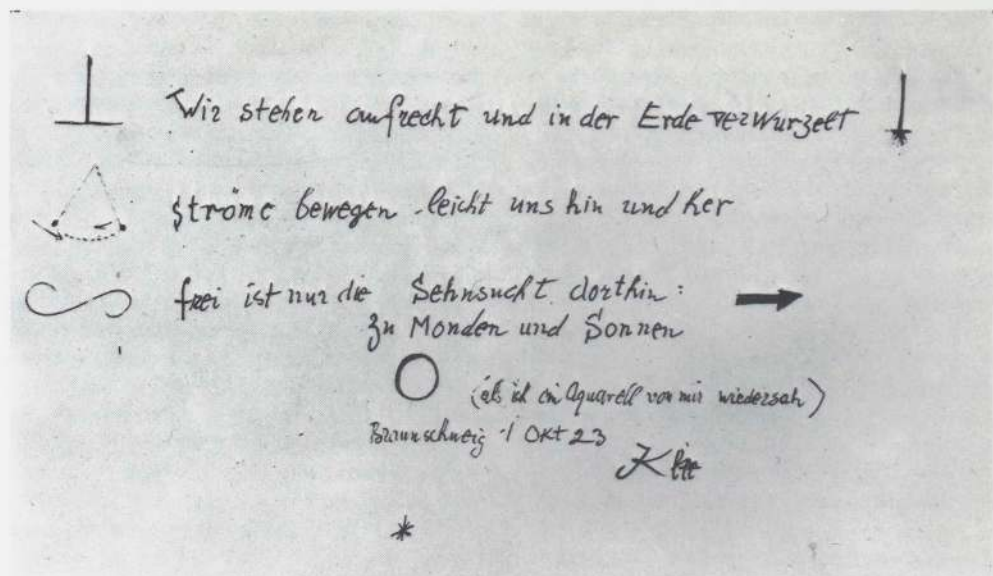 Wir stehen aufrecht und in der Erde verwurzelt
Ströme bewegen leicht uns hin und her
frei ist nur die Sehnsucht dorthin:
zu Monden und Sonnen
(als ich ein Aquarell von mir wiedersah)
Braunschweig 1 Okt 23
Klee